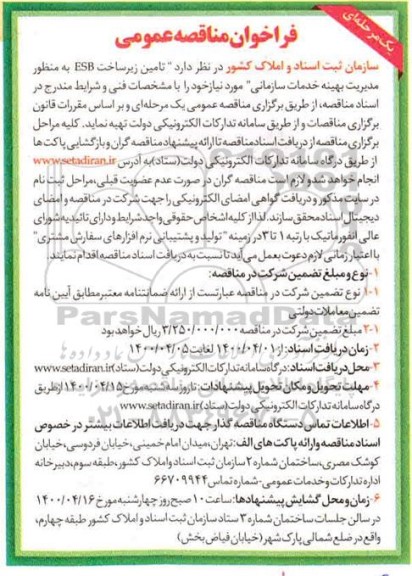 یک مرحله‌ای
فراخوان مناقصه عمومی
سازمان ثبت اسناد و املاک کشور در نظر دارد " تامین زیرساخت ESB به منظور
مدیریت بهینه خدمات سازمانی" مورد نیاز خود را با مشخصات فنی و شرایط مندرج در
اسناد مناقصه، از طریق برگزاری مناقصه عمومی یک مرحله‌ای و بر اساس مقررات قانون
برگزاری مناقصات و از طریق سامانه تدارکات الکترونیکی دولت تهیه نماید. کلیه مراحل
برگزاری مناقصه از دریافت اسناد مناقصه تا ارائه پیشنهاد مناقصه گران و بازگشایی پاکت‌ها
از طریق درگاه سامانه تدارکات الکترونیکی دولت(ستاد) به آدرس www.setadiran.ir
انجام خواهد شد و لازم است مناقصه گران در صورت عدم عضویت قبلی، مراحل ثبت نام
در سایت مذکور و دریافت گواهی امضای الکترونیکی را جهت شرکت در مناقصه و امضای
دیجیتال اسناد محقق سازند. لذا از کلیه اشخاص حقوقی واجد شرایط و دارای تائیدیه شورای
عالی انفورماتیک با رتبه ۱ تا ۳ در زمینه "تولید و پشتیبانی نرم افزارهای سفارش مشتری"
با اعتبار زمانی لازم دعوت بعمل می‌آید تا نسبت به دریافت اسناد مناقصه اقدام نمایند.
۱-نوع و مبلغ تضمین شرکت در مناقصه:
۱-۱ نوع تضمین شرکت در مناقصه عبارتست از ارائه ضمانتنامه معتبر مطابق آیین نامه
تضمین معاملات دولتی
۲-۱ مبلغ تضمین شرکت در مناقصه ۳/۲۵۰/۰۰۰/۰۰۰ ریال خواهد بود
۲-زمان دریافت اسناد: از ۱۴۰۰/۰۴/۰۱ لغایت ۱۴۰۰/۰۴/۰۵
۳-محل دریافت اسناد: درگاه سامانه تدارکات الکترونیکی دولت(ستاد) www.setadiran.ir
۴- مهلت تحویل و مکان تحویل پیشنهادات: تا روز سه شنبه مورخ ۱۴۰۰/۰۴/۱۵ از طریق
درگاه سامانه تدارکات الکترونیکی دولت(ستاد) www.setadiran.ir
۵-اطلاعات تماس دستگاه مناقصه گذار جهت دریافت اطلاعات بیشتر در خصوص
اسناد مناقصه و ارائه پاکت های الف: تهران، میدان امام خمینی، خیابان فردوسی، خیابان
کوشک مصری، ساختمان شماره ۲ سازمان ثبت اسناد و املاک کشور، طبقه سوم، دبیرخانه
اداره تدارکات و خدمات عمومی- شماره تماس ۶۶۷۰۹۹۴۴
۶-زمان و محل گشایش پیشنهادها: ساعت ۱۰ صبح روز چهارشنبه مورخ ۱۴۰۰/۰۴/۱۶
در سالن جلسات ساختمان شماره ۳ ستاد سازمان ثبت اسناد و املاک کشور طبقه چهارم،
واقع در ضلع شمالی پارک شهر (خیابان فیاض بخش)
ParsNamadData